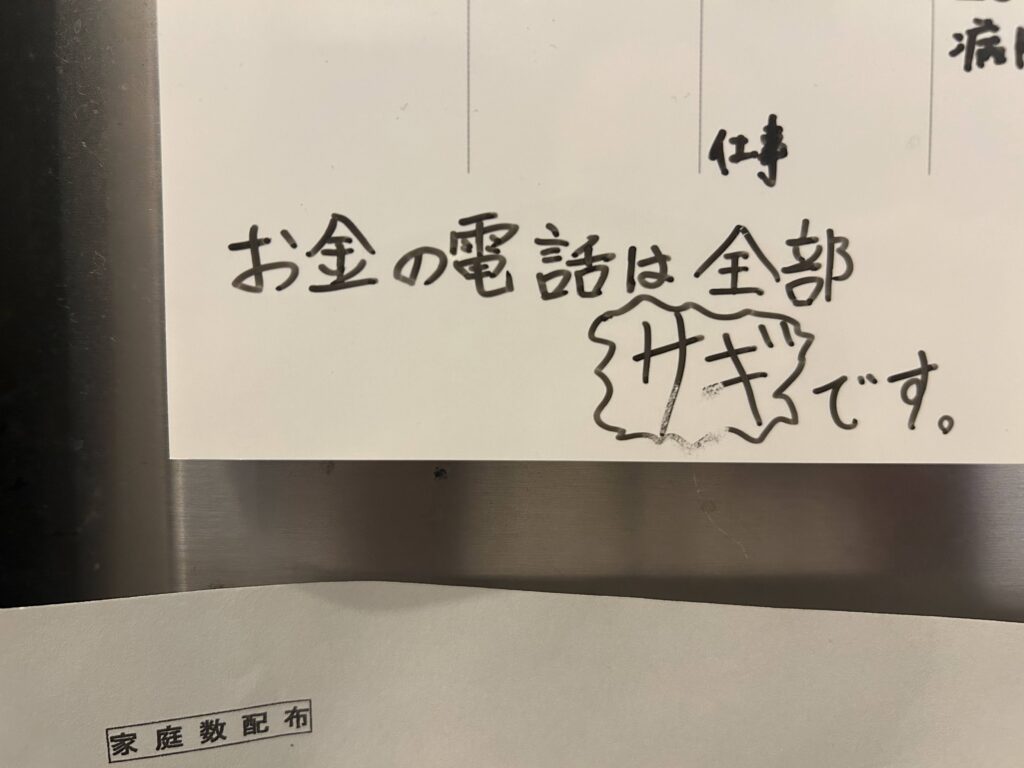 仕事
お金の電話は全部
サギです。
家庭数配布